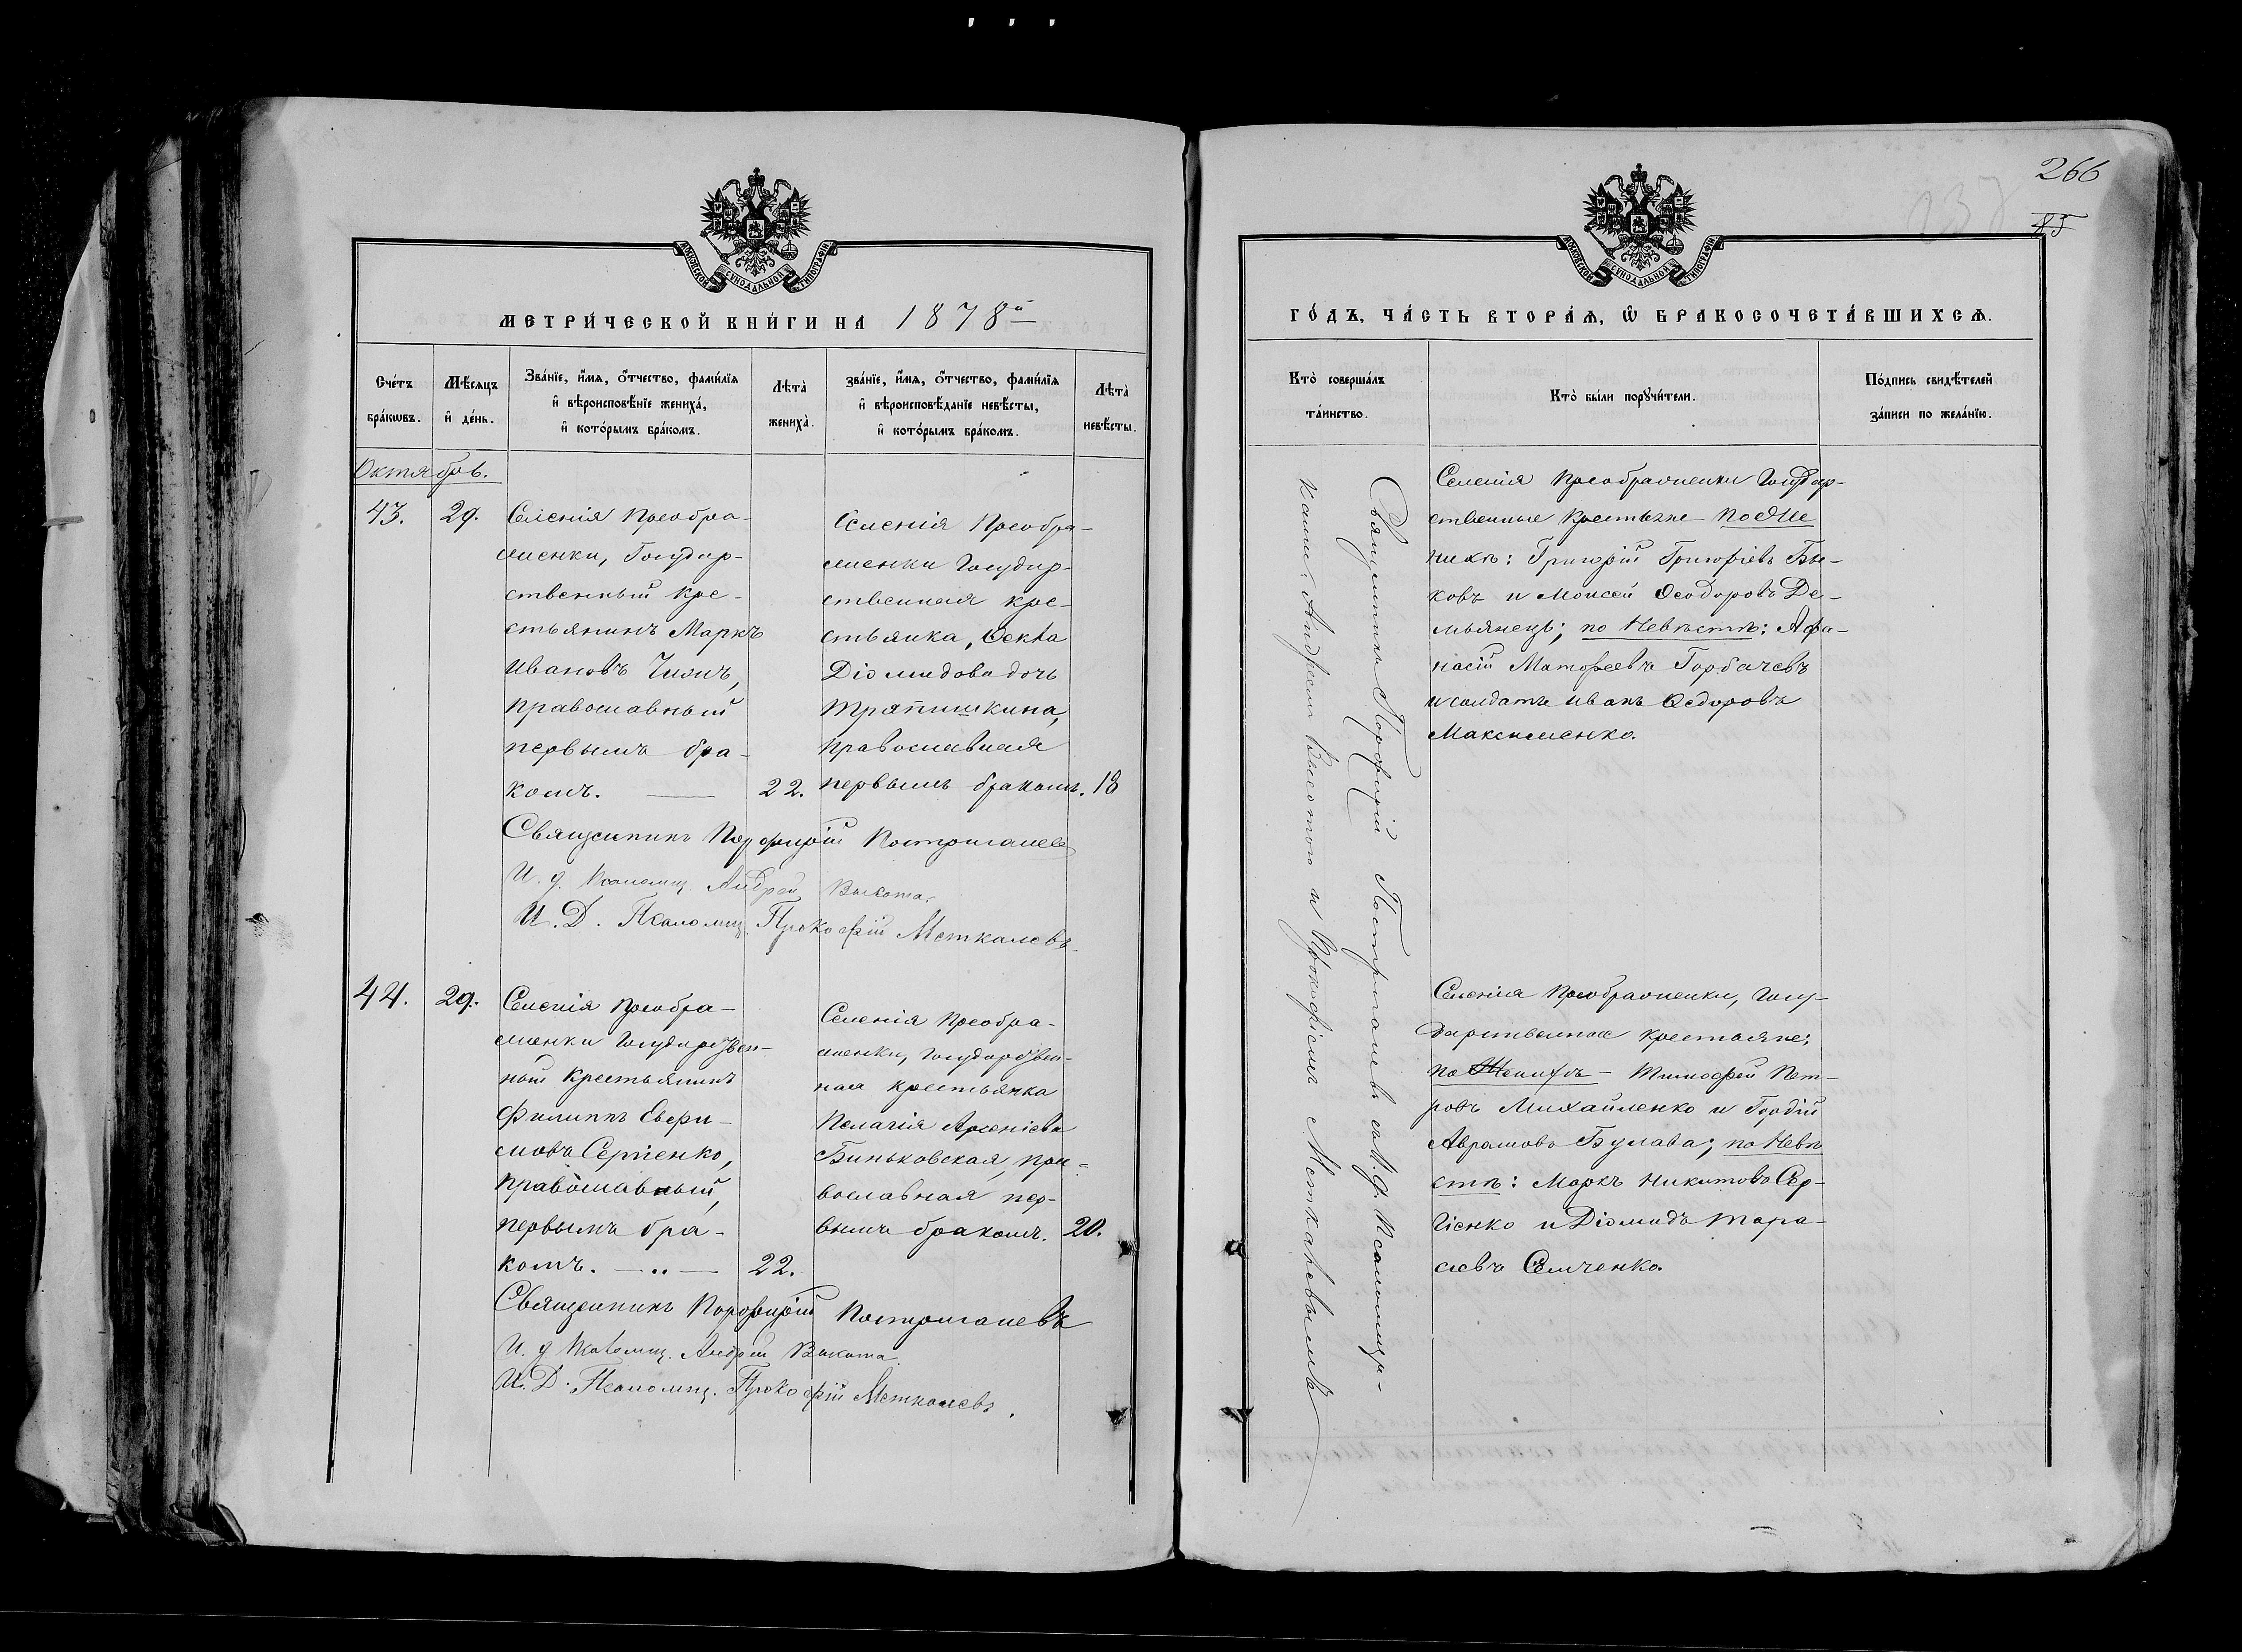 МОСКОВСКОЙ СУНОДАЛЬНОЙ ТИПОГРАФІИ
МЕТРИ́ЧЕСКОЙ КНИ́ГИ НА 1878й
Сче́тъ бра́кѡвъ.
Мѣ́сяцъ и҆ де́нь.
Зва́нїе, и҆́мѧ, ѻ҆́тчество, фами́лїѧ
и҆ вѣроисповѣ́нїе жениха̀,
и҆ кото́рымъ бра́комъ.
Лѣта̀ жениха̀.
зва́нїе, и҆́мѧ, ѻ҆́тчество, фами́лїѧ
и҆ вѣроисповѣ́данїе невѣ́сты,
и҆ кото́рымъ бра́комъ.
Лѣта̀ невѣ́сты.
Октябрь.
43. 29.
Селенія Преобра-
женки, Государ-
ственный кре-
стьянинъ Маркъ
Ивановъ Чижъ,
православный
первымъ бра-
комъ. — 22.
Селенія Преобра-
женки Государ-
ственная кре-
стьянка, Ѳекла
Діомидова дочь
Тряпишкина,
православная
первымъ бракомъ. 18
Священникъ Порфирій Постригалевъ
И. д. Псаломщ. Андрей Высота.
И. Д. Псаломщ. Прокофій Меткалевъ.
44. 29.
Селенія Преобра-
женки Государствен-
ный Крестьянинъ
Филиппъ Евфи-
мовъ Сергіенко,
православный,
первымъ бра-
комъ. — „ — 22.
Селенія Преобра-
женки, Государствен-
ная крестьянка
Пелагія Арсеніева
Биньковская, пра-
вославная пер-
вымъ бракомъ. 20.
Священникъ Порфирій Постригалевъ
И. д Псаломщ. Андрей Высота.
И. Д. Псаломщ. Прокофій Меткалевъ.
266
85
МОСКОВСКОЙ СУНОДАЛЬНОЙ ТИПОГРАФІИ
ГО́ДЪ, ЧА́СТЬ ВТОРА́Ѧ, Ѡ҆ БРАКОСОЧЕТА́ВШИХСѦ.
Кто̀ соверша́лъ
та́инство.
Кто̀ бы́ли порꙋчи́тели.
По́дпись свидѣ́телей
за́писи по жела́нїю.
Священникъ Порфирій Постригалевъ съ И. д. Псаломщи-
ками: Андреемъ Высотою и Прокофіемъ Меткалевымъ
Селенія Преображенки Государ-
ственные Крестьяне По Же
нихѣ: Григорій Григорьевъ Бы-
ковъ и Моисей Ѳеодоровъ Де-
мьянецъ; по Невѣстѣ: Афа-
насій Матфеевъ Горбачевъ
и солдатъ Иванъ Ѳедоровъ
Максименко.
Селенія Преображенки, Госу-
дарственные крестьяне:
по Женихѣ - Тимофей Пет-
ровъ Михайленко и Гордій
Аврамовъ Булава; по Невѣ
стѣ: Маркъ Никитовъ Сер-
гіенко и Діомидъ Тара-
совъ Семченко.